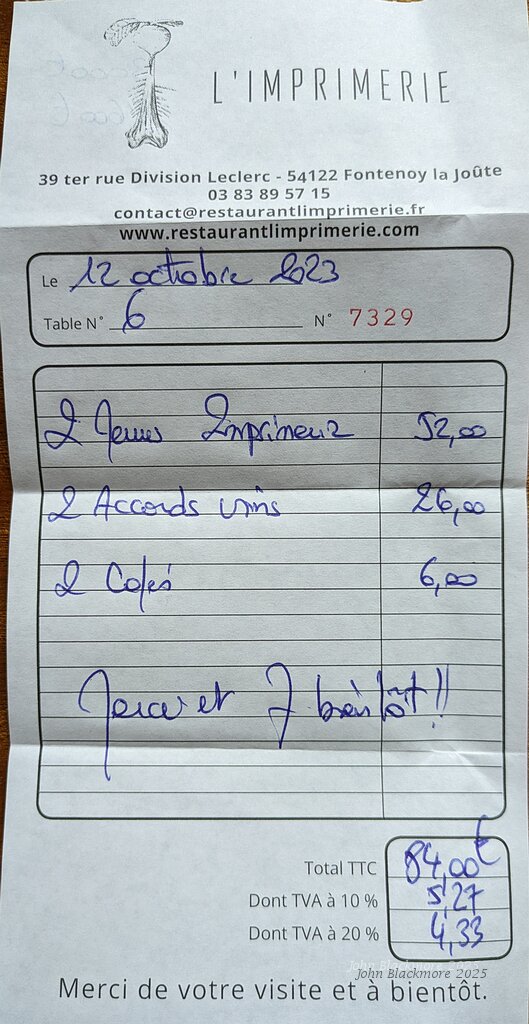 L'IMPRIMERIE
39 ter rue Division Leclerc - 54122 Fontenoy la Joûte
03 83 89 57 15
contact@restaurantlimprimerie.fr
www.restaurantlimprimerie.com
Le 12 octobre 2023
Table N° 6 N° 7329
2 Menus Imprimeur 52,00
2 Accords vins 26,00
2 Cafés 6,00
Merci et à bientôt!!
Total TTC 84,00€
Dont TVA à 10 % 5,27
Dont TVA à 20 % 4,33
John Blackmore 2025
Merci de votre visite et à bientôt.